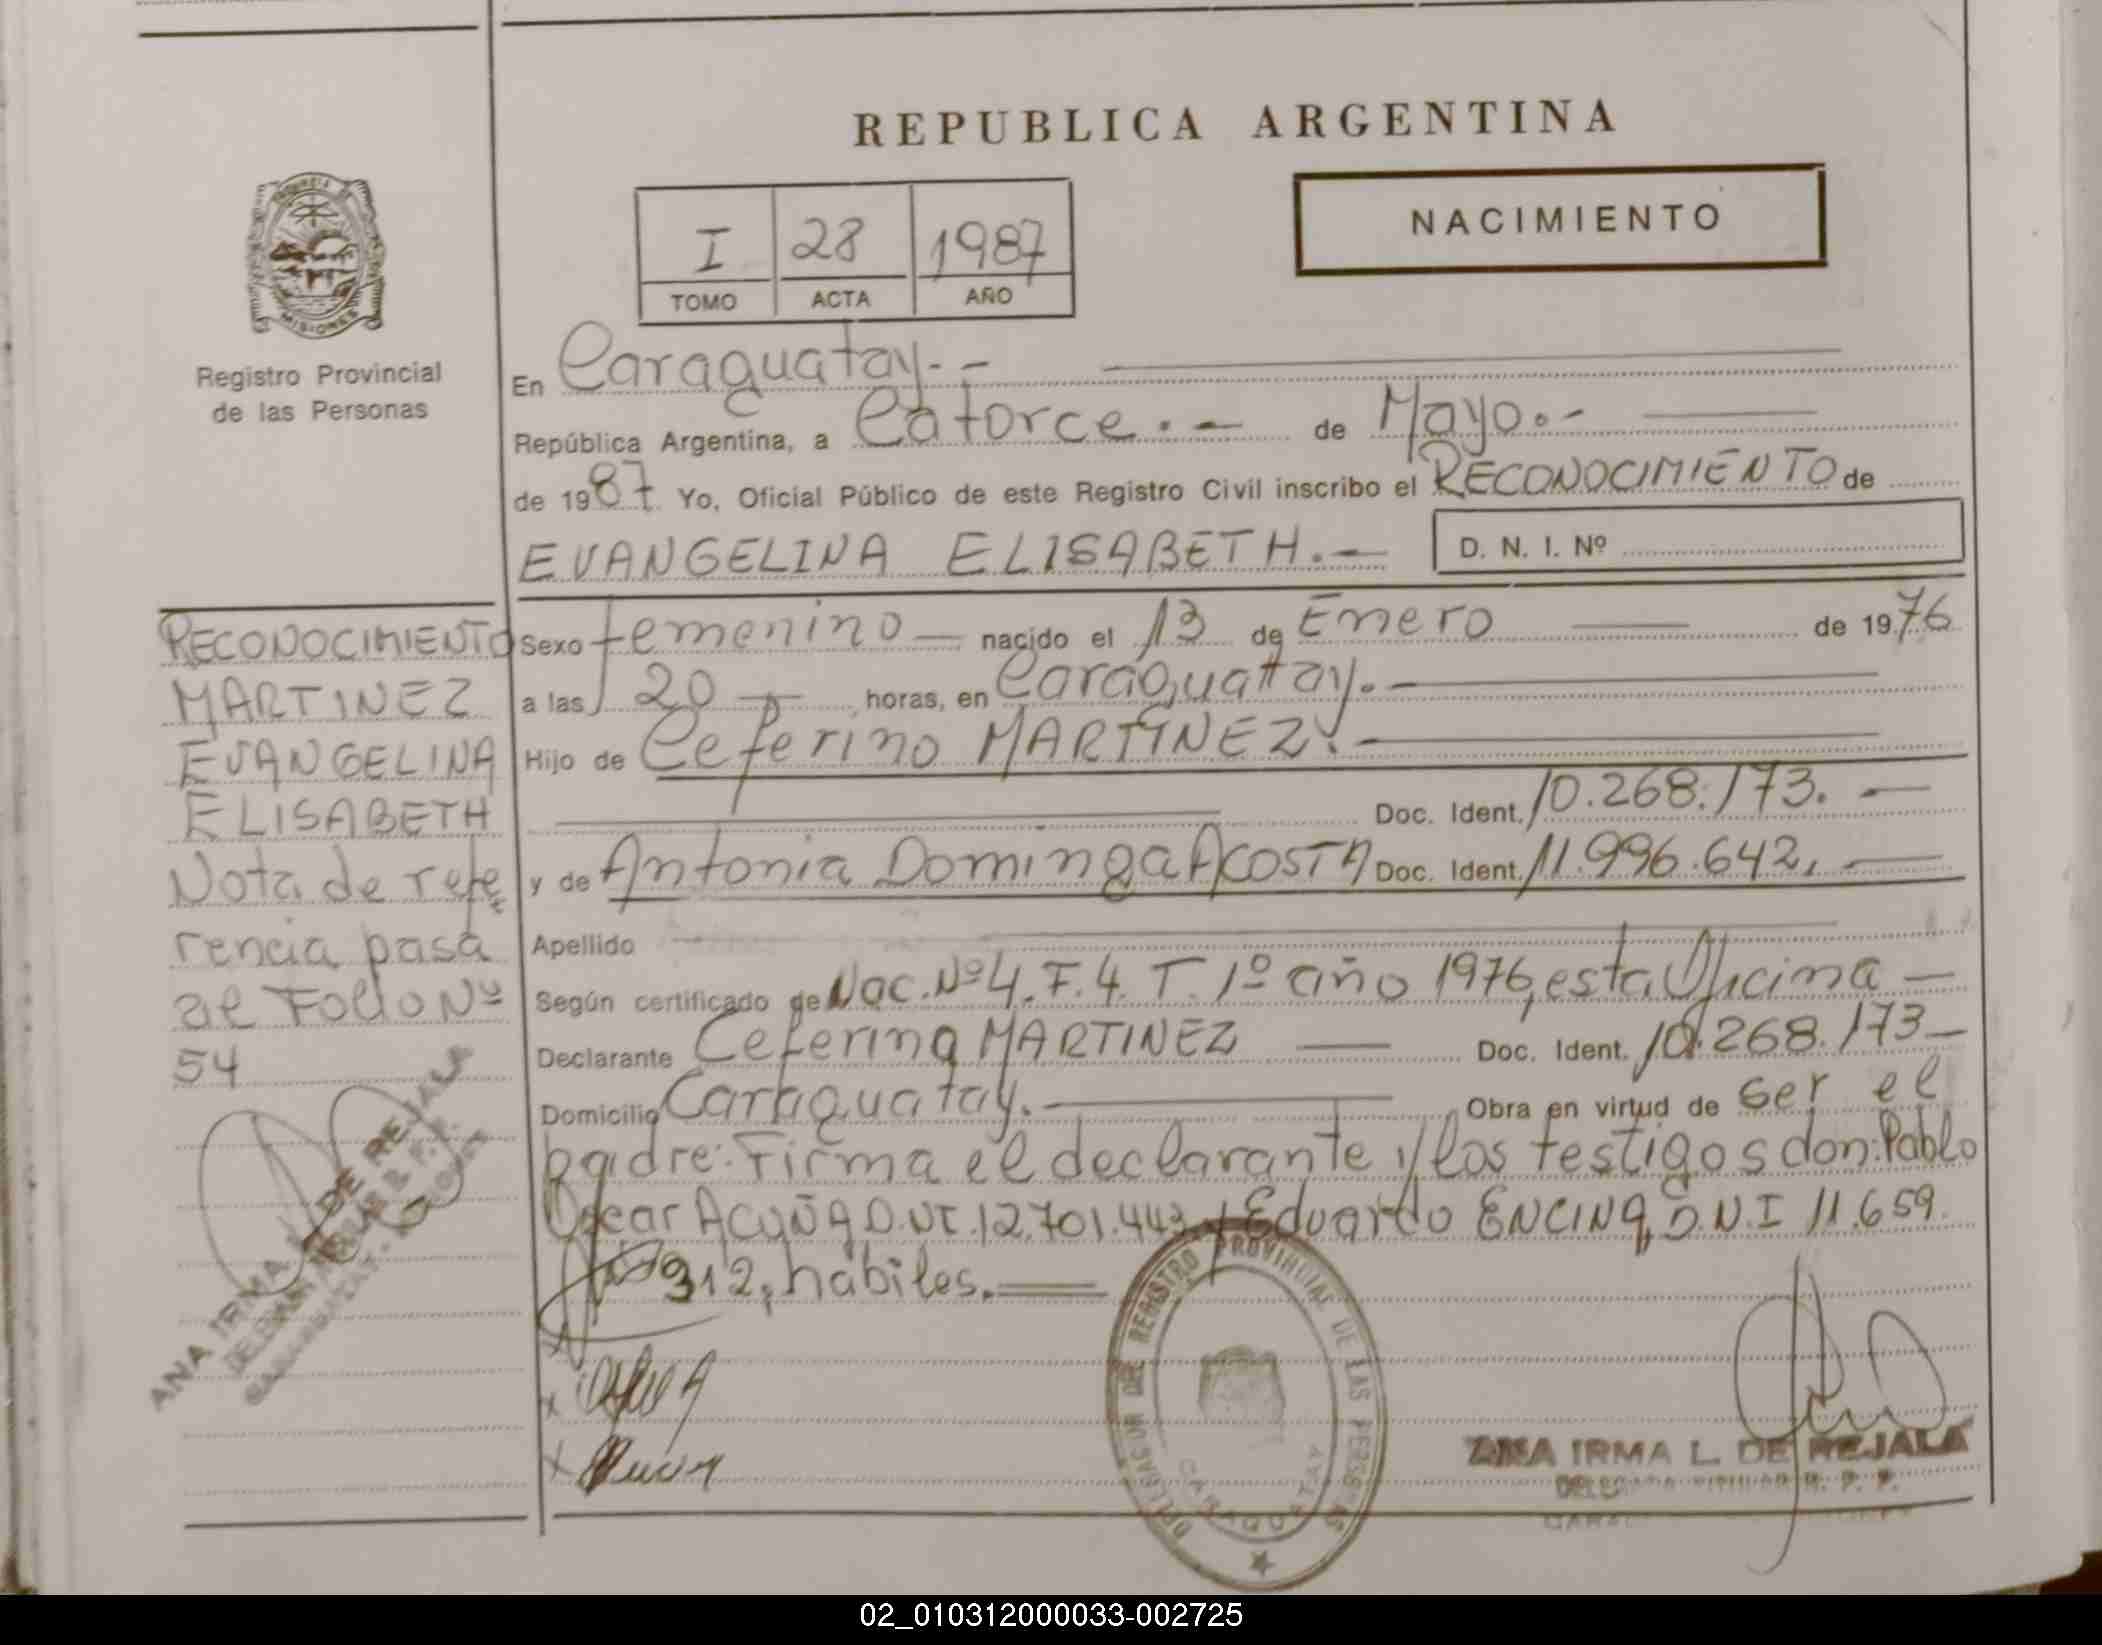 REPUBLICA ARGENTINA
NACIMIENTO
I 28 1987
TOMO ACTA AÑO
MISIONES
Registro Provincial
de las Personas
En Caraguatay.-
República Argentina, a Catorce.- de Mayo.-
de 1987 Yo, Oficial Público de este Registro Civil inscribo el RECONOCIMIENTO de
EVANGELINA ELISABETH.-
D. N. I. Nº
RECONOCIMIENTO
MARTINEZ
EVANGELINA
ELISABETH
Nota de refe
rencia pasa
al Folio Nº
54
ANA IRMA L. DE REJALA
Sexo femenino nacido el 13 de Enero de 1976
a las 20 horas, en Caraguatay.
Hijo de Ceferino MARTINEZ.
Doc. Ident. 10.268.173.
y de Antonia Dominga ACOSTA Doc. Ident. 11.996.642,
Apellido
Según certificado de Nac. Nº 4. F. 4. T. 1º año 1976, esta Oficina
Declarante Ceferino MARTINEZ Doc. Ident. 10.268.173
Domicilio Caraguatay. Obra en virtud de ser el
padre. Firma el declarante y los testigos don: Pablo
Oscar ACUÑA D.N.I. 12.701.443 y Eduardo ENCINA, D.N.I 11.659.
312, habiles.
DELEGACION DEL REGISTRO PROVINCIAL DE LAS PERSONAS
CARAGUATAY
ANA IRMA L. DE REJALA
02_010312000033-002725